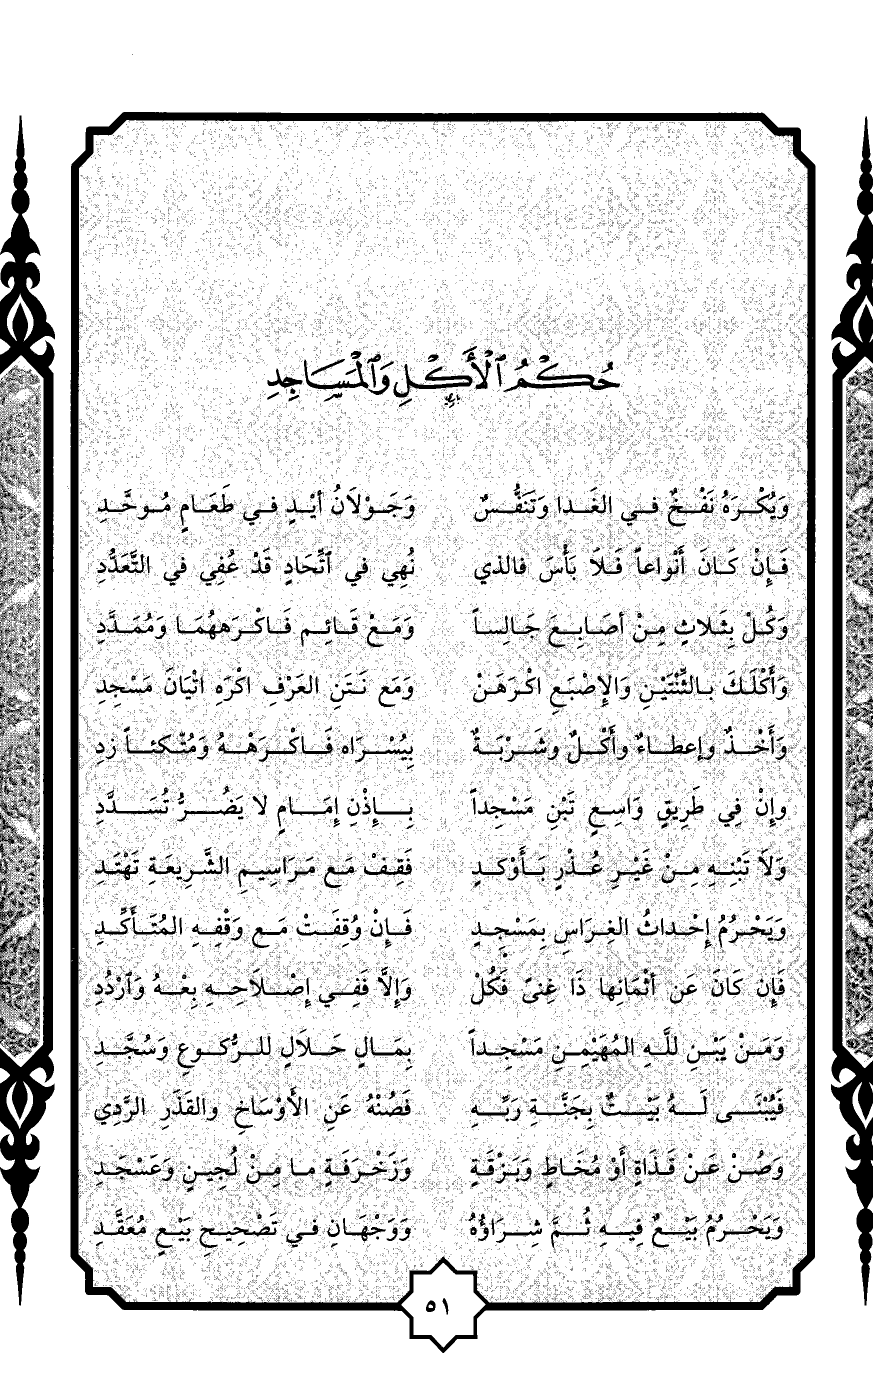 حُكْمُ الْأَكْلِ وَالْمَسَاجِدِ
وَيُكْرَهُ نَفْخٌ في الغَدا وَتَنَفُّسٌ وَجَوْلَانُ أيْدٍ في طَعَامٍ مُوحَّدِ
فَإِنْ كَانَ أَنْواعاً فَلَا بَأْسَ فالذي نُهِي في اتِّحَادٍ قَدْ عُفِي في التَّعَدُّدِ
وَكُلْ بِثَلاثٍ مِنْ أصَابِعَ جَالِساً وَمَعْ قَائِمٍ فَاكْرَههُمَا وَمُمَدَّدِ
وَأَكْلَكَ بِالثِّنْتَيْنِ وَالإِصْبَعِ اكْرَهَنْ وَمَع نَتَنِ العَرْفِ اكْرَهِ اتْيَانَ مَسْجِدِ
وَأَخْذٌ وإعطاءٌ وأَكْلٌ وشَرْبَةٌ بِيُسْرَاه فَاكْرَهْهُ وَمُتْكئاً زدِ
وإنْ فِي طَرِيقٍ وَاسِعٍ تَبْنِ مَسْجِداً بِإِذْنِ إمَامٍ لا يَضُرُّ تُسَدَّدِ
وَلَا تَبْنِهِ مِنْ غَيْرِ عُذْرٍ بَأَوْكَدٍ فَقِفْ مَع مَرَاسِيمِ الشَّرِيعَةِ تَهْتَدِ
وَيَحْرُمُ إحْداثُ الغِرَاسِ بِمَسْجِدٍ فَإنْ وُقِفَتْ مَع وَقْفِهِ المُتَأَكِّدِ
فَإن كَانَ عَن أثْمَانِها ذَا غِنىً فَكُلْ وَإلَّا فَفِي إصْلَاحِهِ بِعْهُ وَارْدُدِ
وَمَنْ يَبْنِ للَّهِ المُهَيْمِنِ مَسْجِداً بِمَالٍ حَلَالٍ للرُّكوعِ وَسُجَّدِ
فَيُبْنَى لَهُ بَيْتٌ بِجَنَّةِ رَبِّهِ فَصُنْهُ عَنِ الأَوْسَاخِ والقَذَرِ الرَّدِي
وَصُنْ عَنْ قَذَاةٍ أوْ مُخَاطٍ وَبَزْقَةٍ وَزَخْرَفَةٍ ما مِنْ لُجِينٍ وَعَسْجَدِ
وَيَحْرُمُ بَيْعٌ فِيهِ ثُمَّ شِرَاؤُهُ وَوَجْهَانِ في تَصْحِيحِ بَيْعٍ مُعَقَّدِ
٥١